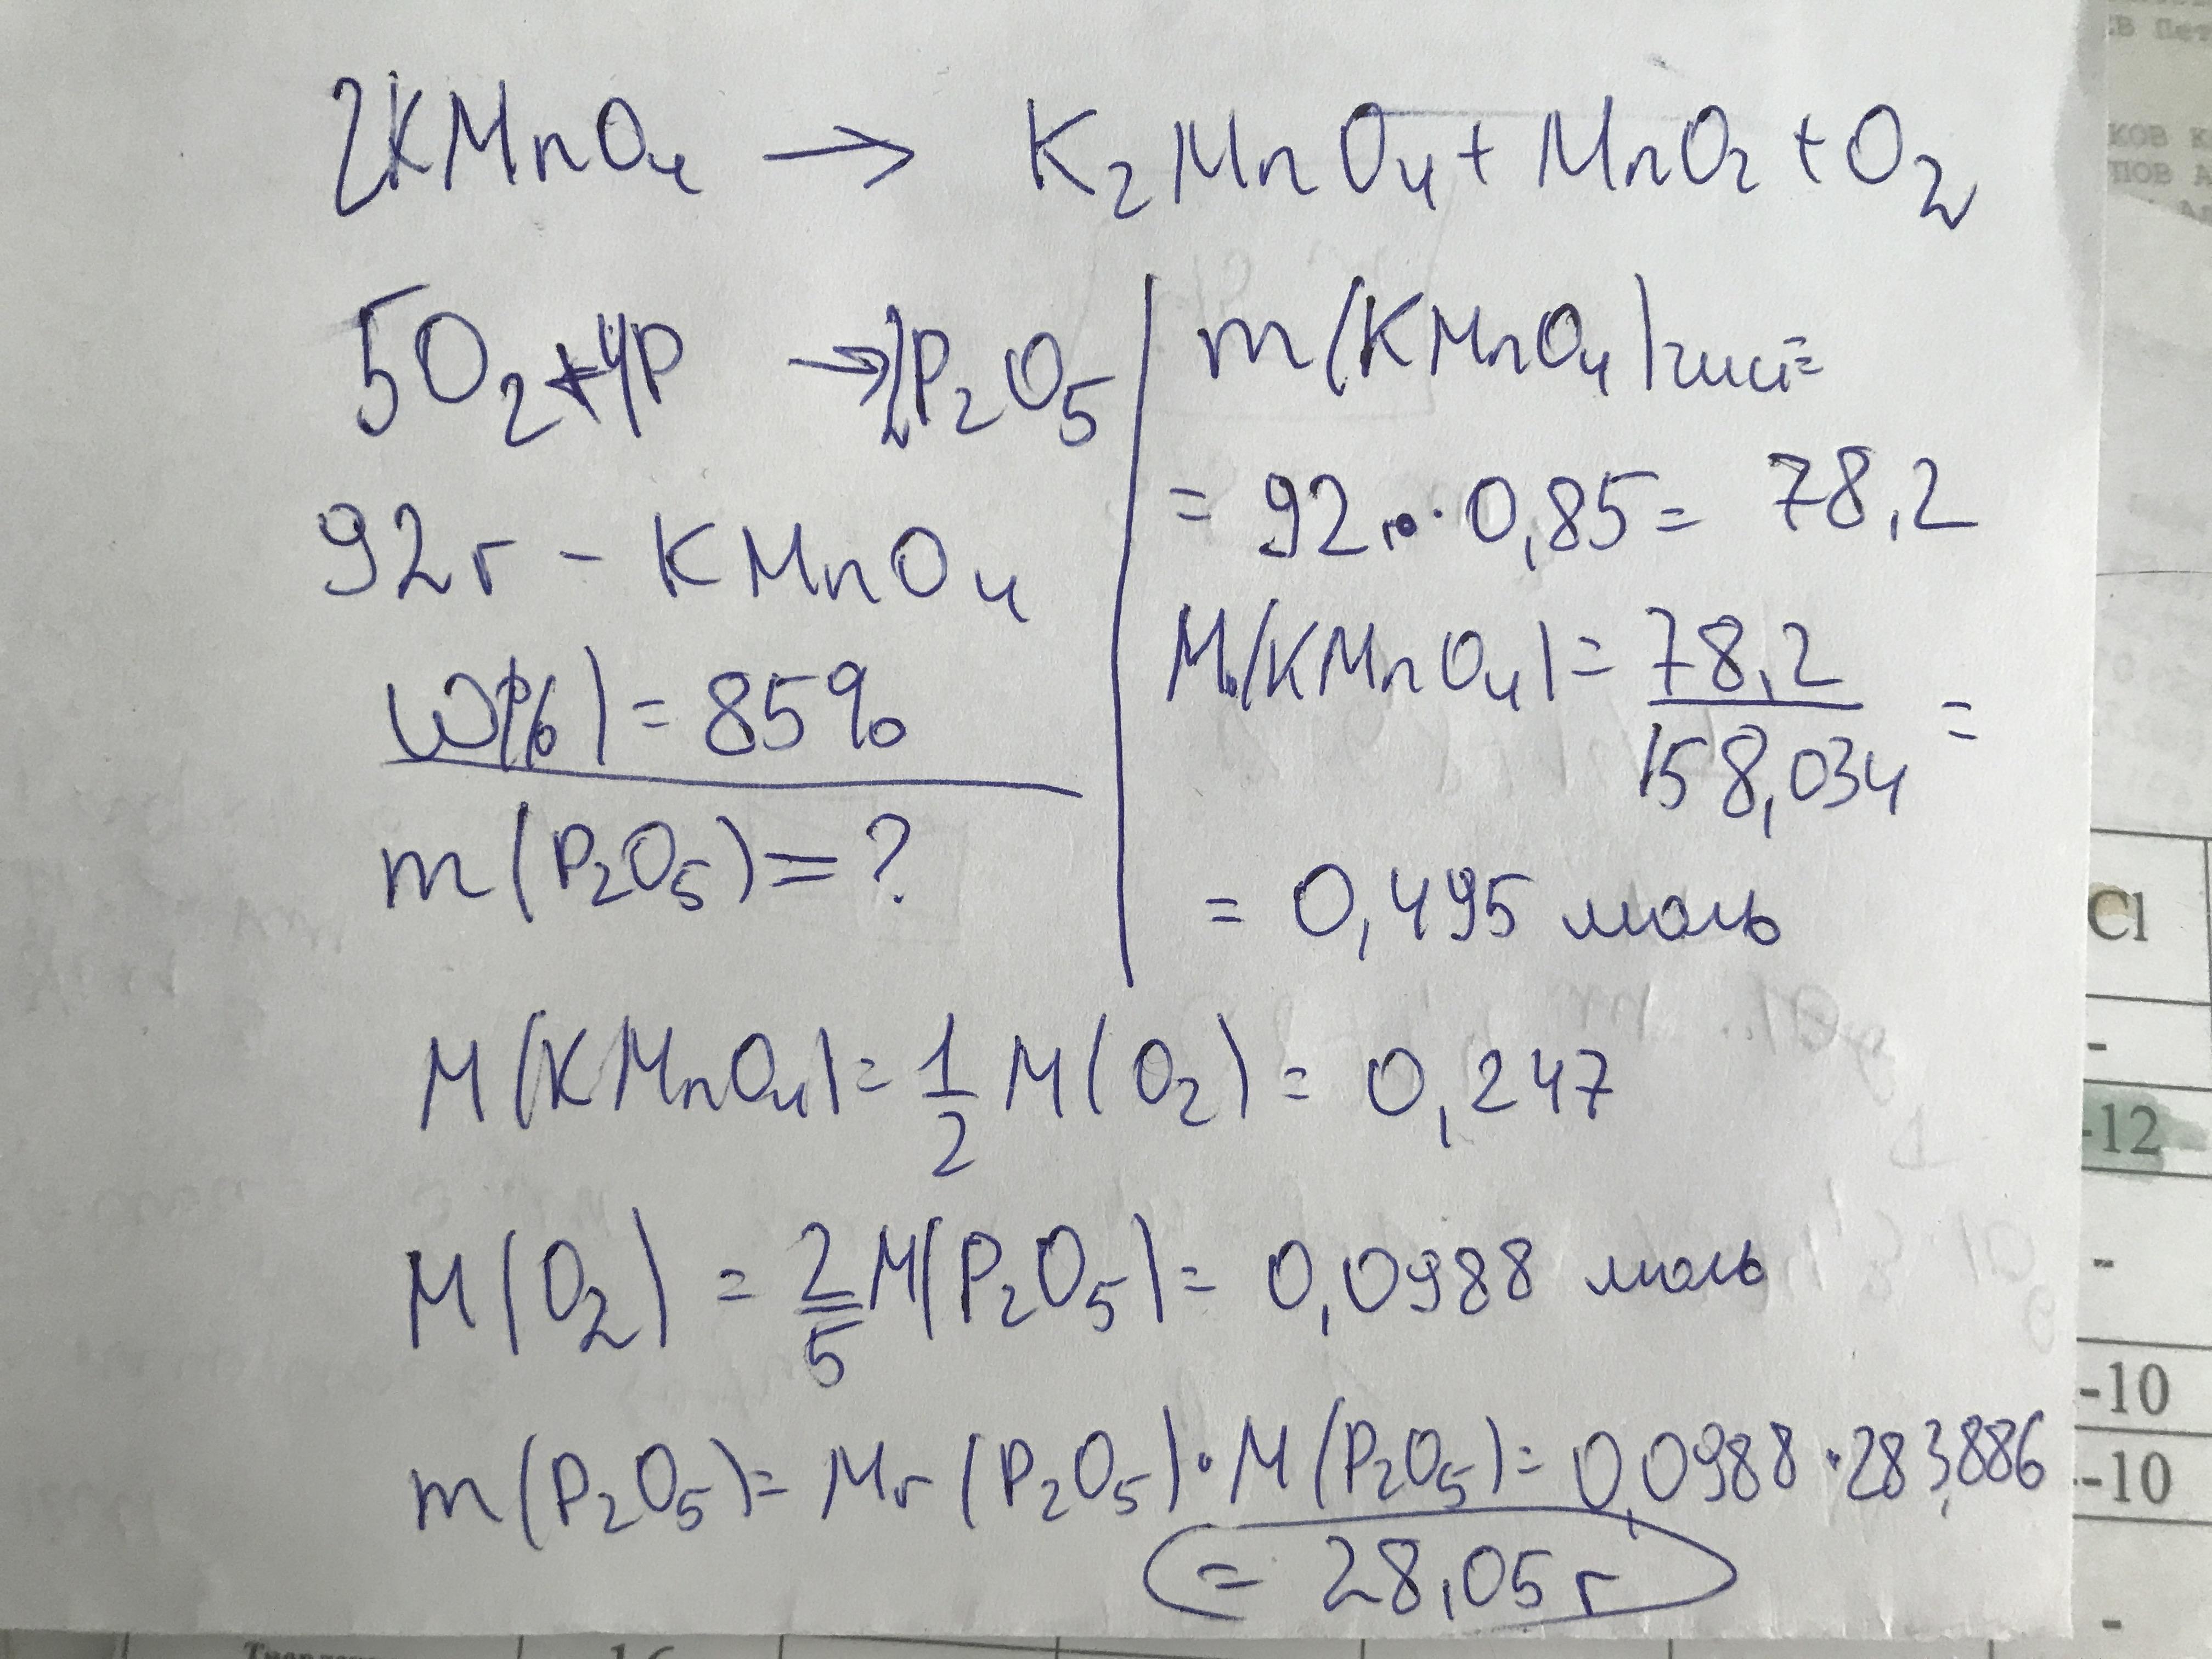 2KMnO4 → K2MnO4 + MnO2 + O2
5O2 + 4P → 2P2O5
92г - KMnO4
ω(%) = 85%
m(P2O5) = ?
m(KMnO4)чист =
= 92 · 0,85 = 78,2
M(KMnO4) = 78,2 / 158,034 =
= 0,495 моль
M(KMnO4) = 1/2 M(O2) = 0,247
M(O2) = 2/5 M(P2O5) = 0,0988 моль
m(P2O5) = Mr(P2O5) · M(P2O5) = 0,0988 · 283,886
= 28,05 г
Cl
-
-12
-
-10
-10
-